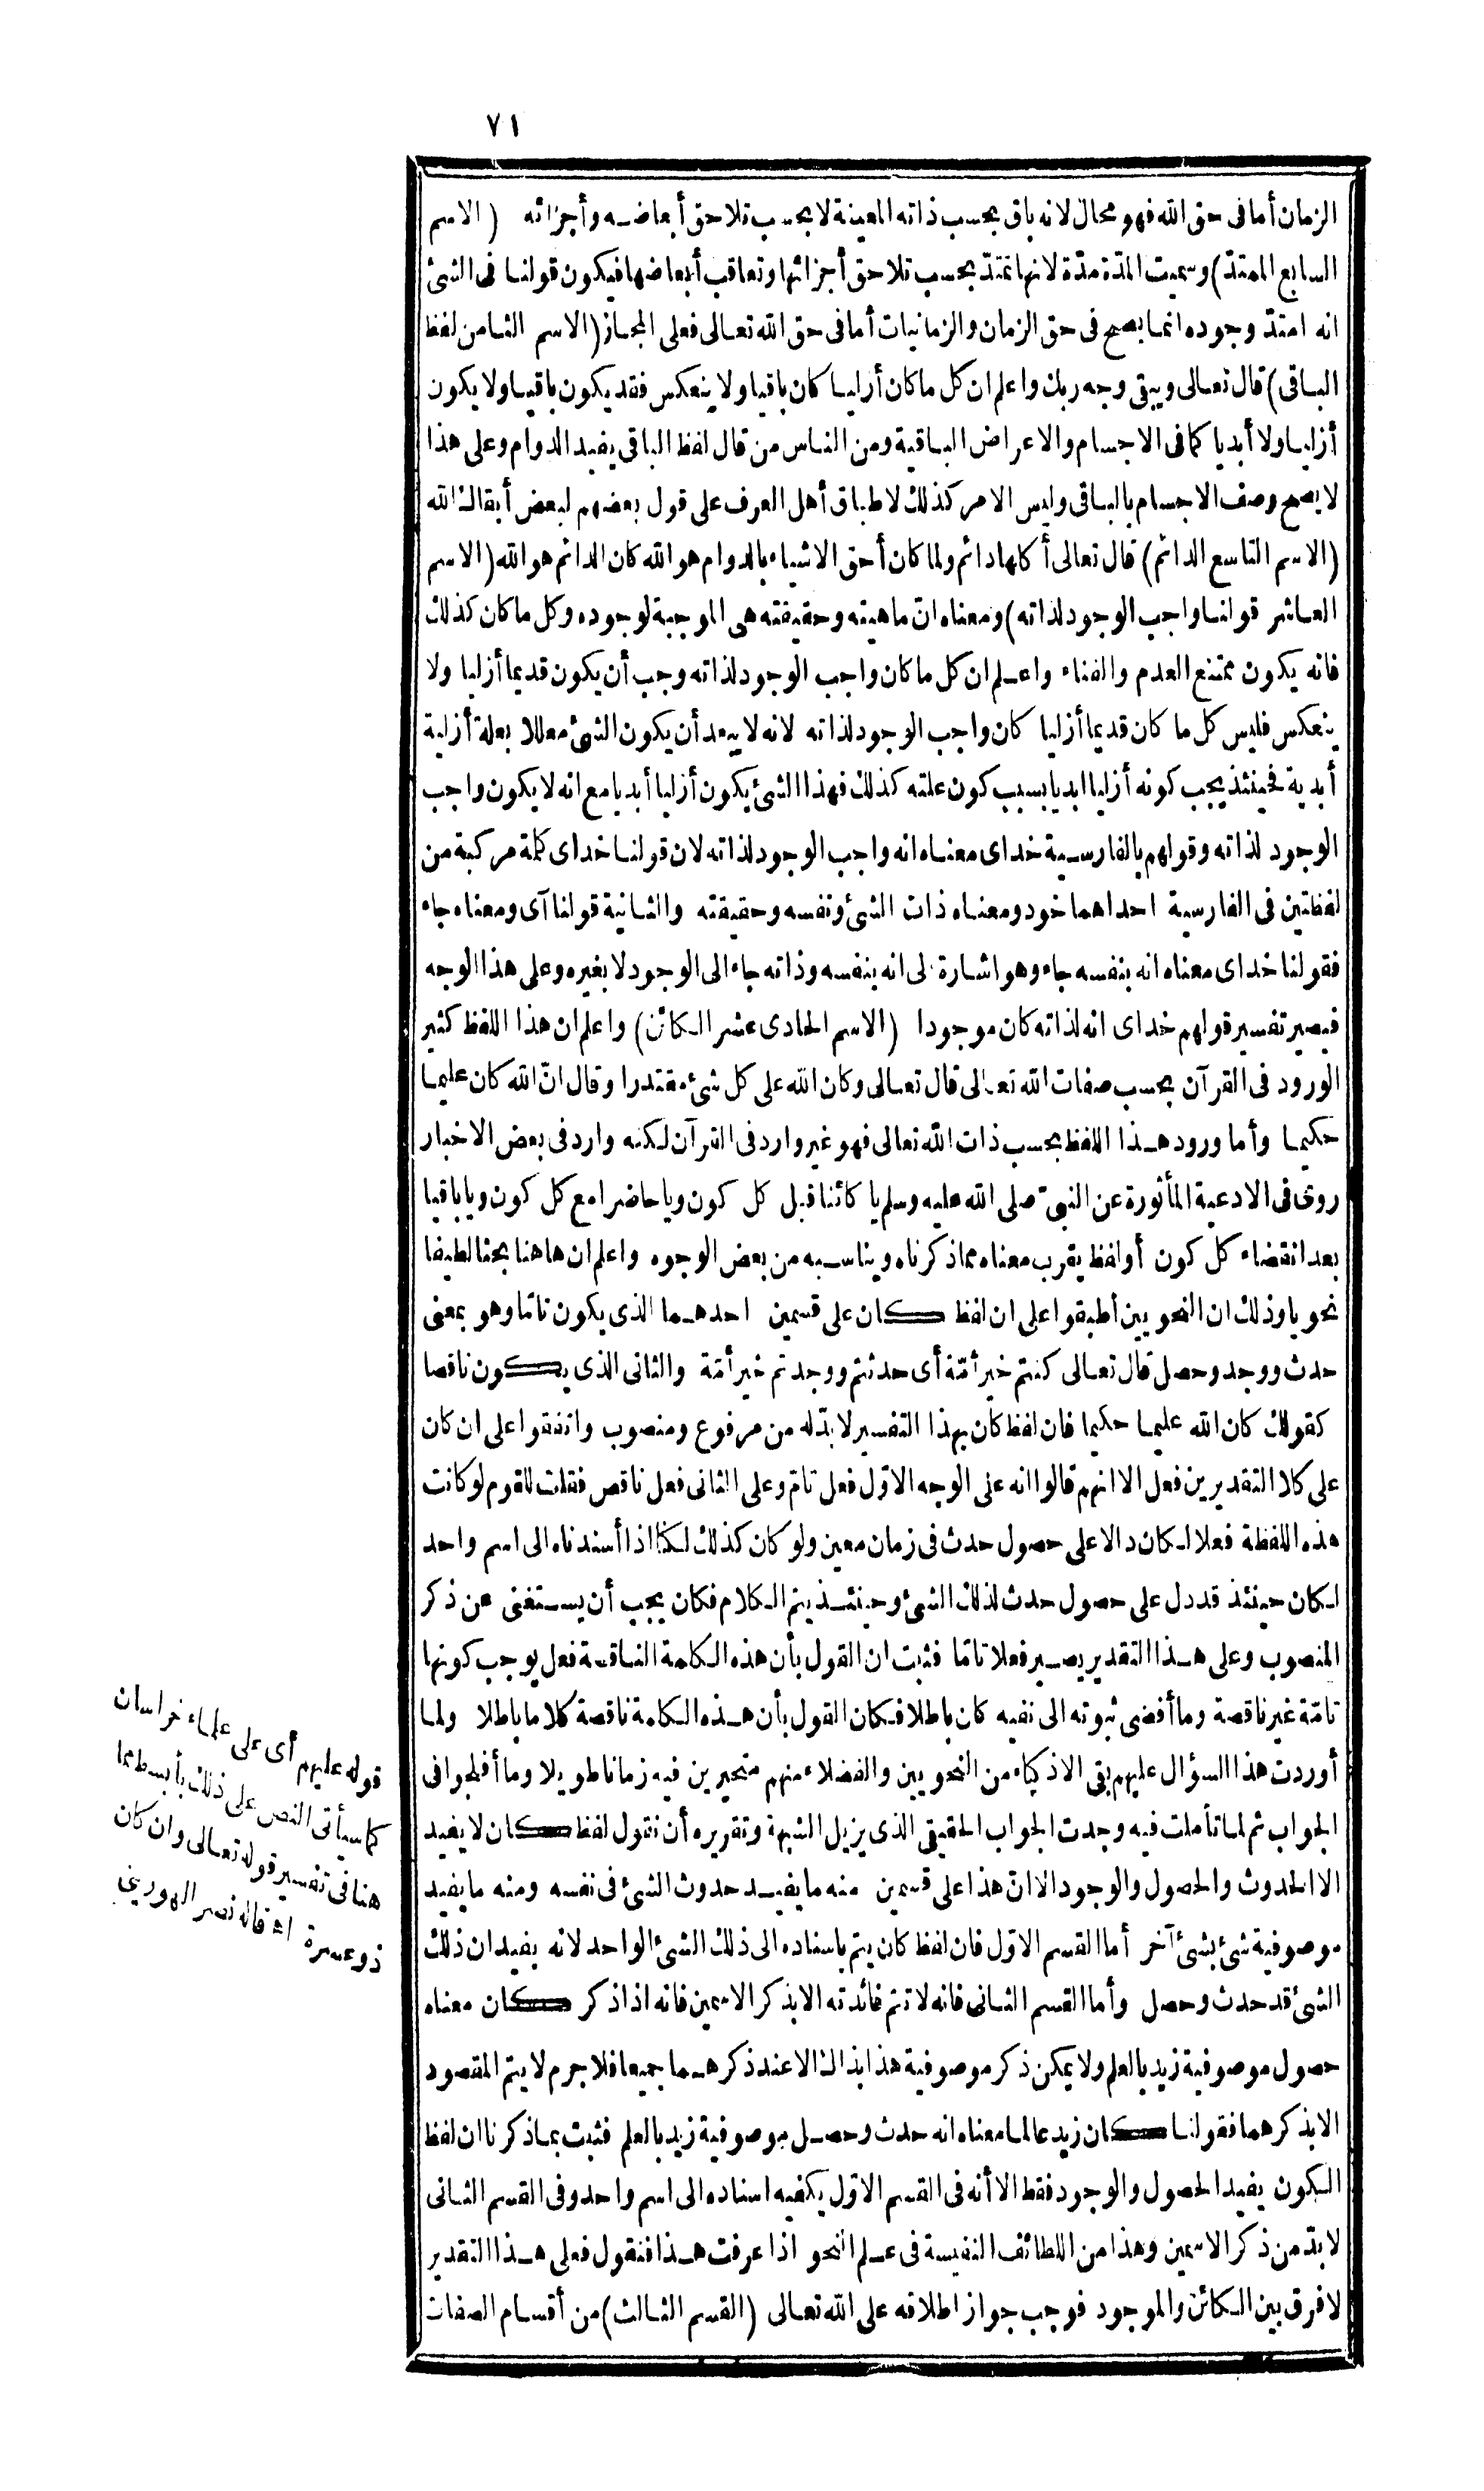 ٧١
الزمان أما فى حق الله فهو محال لانه باق بحسب ذاته المعينة لا بحسب تلاحق أبعاضه وأجزائه (الاسم
السابع الممتدّ) وسميت المدّة مدّة لانها تمتدّ بحسب تلاحق أجزائها وتعاقب أبعاضها فيكون قولنا فى الشئ
انه امتدّ وجوده انما يصح فى حق الزمان والزمانيات أما فى حق الله تعالى فعلى المجاز (الاسم الثامن لفظ
الباقى) قال تعالى ويبقى وجه ربك واعلم ان كل ما كان أزليا كان باقيا ولا ينعكس فقد يكون باقيا ولا يكون
أزليا ولا أبديا كما فى الاجسام والاعراض الباقية ومن الناس من قال لفظ الباقى يفيد الدوام وعلى هذا
لا يصح وصف الاجسام بالباقى وليس الامر كذلك لاطباق أهل العرف على قول بعضهم لبعض أبقاك الله
(الاسم التاسع الدائم) قال تعالى أكلها دائم ولما كان أحق الاشياء بالدوام هو الله كان الدائم هو الله (الاسم
العاشر قولنا واجب الوجود لذاته) ومعناه انّ ماهيته وحقيقته هى الموجبة لوجوده وكل ما كان كذلك
فانه يكون ممتنع العدم والفناء واعلم ان كل ما كان واجب الوجود لذاته وجب أن يكون قديما أزليا ولا
ينعكس فليس كل ما كان قديما أزليا كان واجب الوجود لذاته لانه لا يبعد أن يكون الشئ معللا بعلة أزلية
أبدية فحينئذ يجب كونه أزليا ابديا بسبب كون علته كذلك فهذا الشئ يكون أزليا أبديا مع انه لا يكون واجب
الوجود لذاته وقولهم بالفارسية خداى معناه انه واجب الوجود لذاته لان قولنا خداى كلمة مركبة من
لفظتين فى الفارسية احداهما خود ومعناه ذات الشئ ونفسه وحقيقته والثانية قولنا آى ومعناه جاء
فقولنا خداى معناه انه بنفسه جاء وهو اشارة الى انه بنفسه وذاته جاء الى الوجود لا بغيره وعلى هذا الوجه
فيصير تفسير قولهم خداى انه لذاته كان موجودا (الاسم الحادى عشر الكائن) واعلم ان هذا اللفظ كثير
الورود فى القرآن بحسب صفات الله تعالى قال تعالى وكان الله على كل شئ مقتدرا وقال انّ الله كان عليما
حكيما وأما ورود هذا اللفظ بحسب ذات الله تعالى فهو غير وارد فى القرآن لكنه وارد فى بعض الاخبار
روى فى الادعية المأثورة عن النبىّ صلى الله عليه وسلم يا كائنا قبل كل كون ويا حاضرا مع كل كون ويا باقيا
بعد انقضاء كل كون أو لفظ يقرب معناه مما ذكرناه ويناسبه من بعض الوجوه واعلم ان هاهنا بحثا لطيفا
نحويا وذلك ان النحويين أطبقوا على ان لفظ كان على قسمين احدهما الذى يكون تامّا وهو بمعنى
حدث ووجد وحصل قال تعالى كنتم خير أمّة أى حدثتم ووجدتم خير أمّة والثانى الذى يكون ناقصا
كقولك كان الله عليما حكيما فان لفظ كان بهذا التفسير لا بدّ له من مرفوع ومنصوب واتفقوا على ان كان
على كلا التقديرين فعل الا انهم قالوا انه على الوجه الاوّل فعل تامّ وعلى الثانى فعل ناقص فقلت للقوم لو كانت
هذه اللفظة فعلا لكان دالا على حصول حدث فى زمان معين ولو كان كذلك لكنا اذا أسندناه الى اسم واحد
لكان حينئذ قد دل على حصول حدث لذلك الشئ وحينئذ يتم الكلام فكان يجب أن يستغنى عن ذكر
المنصوب وعلى هذا التقدير يصير فعلا تامّا فثبت ان القول بأن هذه الكلمة الناقصة فعل يوجب كونها
تامّة غير ناقصة وما أفضى ثبوته الى نفيه كان باطلا فكان القول بأن هذه الكلمة ناقصة كلاما باطلا ولما
أوردت هذا السؤال عليهم بقى الاذكياء من النحويين والفضلاء منهم متحيرين فيه زمانا طويلا وما أفلحوا فى
الجواب ثم لما تأملت فيه وجدت الجواب الحقيقى الذى يزيل الشبهة وتقريره أن نقول لفظ كان لا يفيد
الا الحدوث والحصول والوجود الا انّ هذا على قسمين منه ما يفيد حدوث الشئ فى نفسه ومنه ما يفيد
موصوفية شئ بشئ آخر أما القسم الاوّل فان لفظ كان يتم باسناده الى ذلك الشئ الواحد لانه يفيد ان ذلك
الشئ قد حدث وحصل وأما القسم الثانى فانه لا تتم فائدته الا بذكر الاسمين فانه اذا ذكر كان معناه
حصول موصوفية زيد بالعلم ولا يمكن ذكر موصوفية هذا بذاك الا عند ذكرهما جميعا فلا جرم لا يتم المقصود
الا بذكرهما فقولنا كان زيد عالما معناه انه حدث وحصل موصوفية زيد بالعلم فثبت بما ذكرنا ان لفظ
الكون يفيد الحصول والوجود فقط الا أنه فى القسم الاوّل يكفيه اسناده الى اسم واحد وفى القسم الثانى
لا بدّ من ذكر الاسمين وهذا من اللطائف النفيسة فى علم النحو اذا عرفت هذا فنقول فعلى هذا التقدير
لا فرق بين الكائن والموجود فوجب جواز اطلاقه على الله تعالى (القسم الثالث) من أقسام الصفات
قوله عليهم أى على علماء خراسان
كما سيأتى النص على ذلك بأبسط مما
هنا فى تفسير قوله تعالى وان كان
ذو عسرة اه قاله نصر الهورينى